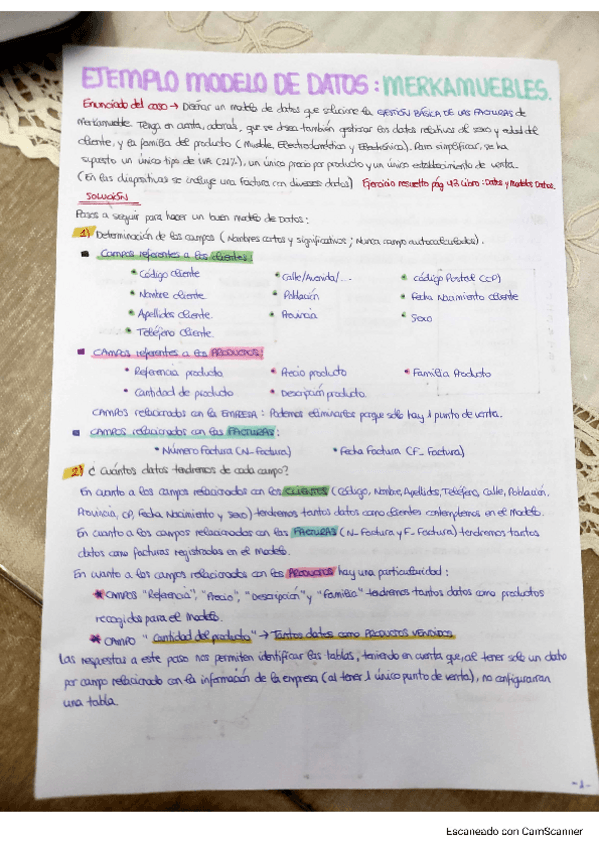 EJEMPLO MODELO DE DATOS: MERKAMUEBLES.
Enunciado del caso → Diseñar un modelo de datos que solucione la GESTIÓN BÁSICA DE LAS FACTURAS de
Merkamueble. Tenga en cuenta, además, que se desea también gestionar los datos relativos al sexo y edad del
cliente, y la familia del producto (Mueble, Electrodoméstico y Electrónica). Para simplificar, se ha
supuesto un único tipo de IVA (21%), un único precio por producto y un único establecimiento de venta.
(En las diapositivas se incluye una factura con diversos datos) Ejercicio resuelto pág 43 Libro: Datos y Modelos Datos.
SOLUCIÓN
Pasos a seguir para hacer un buen modelo de Datos:
1) Determinación de los campos (Nombres cortos y significativos; Nunca campo autocalculados).
■ Campos referentes a los clientes:
• Código cliente • Calle/Avenida/... • código Postal (CP)
• Nombre cliente • Población • Fecha Nacimiento cliente
• Apellidos cliente • Provincia • Sexo
• Teléfono cliente
■ CAMPOS referentes a los PRODUCTOS:
• Referencia producto • Precio producto • Familia Producto
• Cantidad de producto • Descripción producto
CAMPOS relacionados con la EMPRESA: Podemos eliminarlos porque solo hay 1 punto de venta.
■ CAMPOS relacionados con las FACTURAS:
• Número Factura (N_Factura) • Fecha Factura (F_Factura)
2) ¿Cuántos datos tendremos de cada campo?
En cuanto a los campos relacionados con los CLIENTES (Código, Nombre, Apellidos, Teléfono, Calle, Población,
Provincia, CP, Fecha Nacimiento y Sexo) tendremos tantos datos como clientes contemplemos en el Modelo.
En cuanto a los campos relacionados con las FACTURAS (N_Factura y F_Factura) tendremos tantos
datos como facturas registradas en el Modelo.
En cuanto a los campos relacionados con los PRODUCTOS hay una particularidad:
* CAMPOS "Referencia", "Precio", "Descripción" y "Familia" tendremos tantos datos como productos
recogidos para el Modelo.
* CAMPO "Cantidad del producto" → Tantos datos como PRODUCTOS VENDIDOS.
Las respuestas a este paso nos permiten identificar las tablas, teniendo en cuenta que, al tener solo un dato
por campo relacionado con la información de la empresa (al tener 1 único punto de venta), no configuraran
una tabla.
-1-
Escaneado con CamScanner